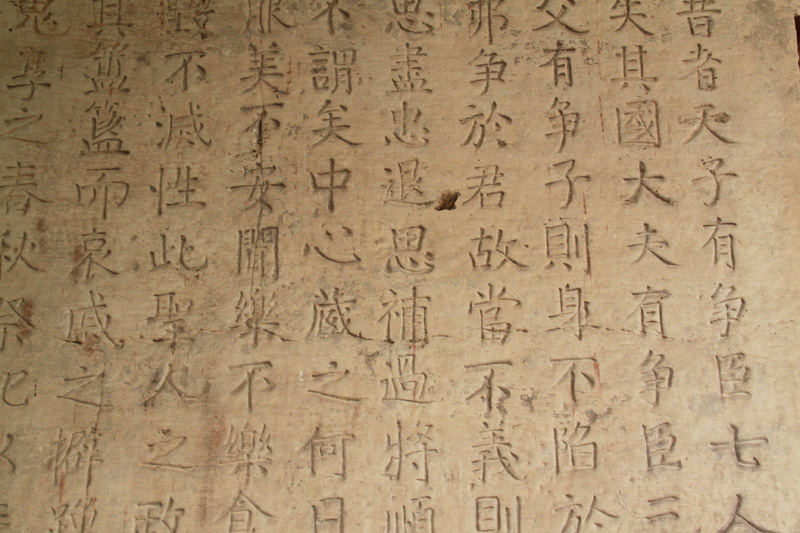 昔者天子有争臣七人
失其國大夫有争臣三
父有争子則身不陷於
弗争於君故當不義則
思盡忠退思補過將順
不謂矣中心蔵之何日
服美不安聞樂不樂食
毀不滅性此聖人之政
其簠簋而哀戚之擗踴
鬼享之春秋祭祀以